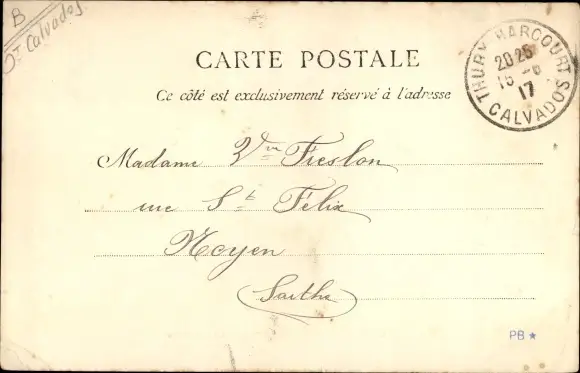 B
Dt Calvados
CARTE POSTALE
Ce côté est exclusivement réservé à l'adresse
THURY-HARCOURT
20 25
15 - 6
17
CALVADOS
Madame Vve Fieslon
rue St Félix
Noyen
Sarthe
PB ★